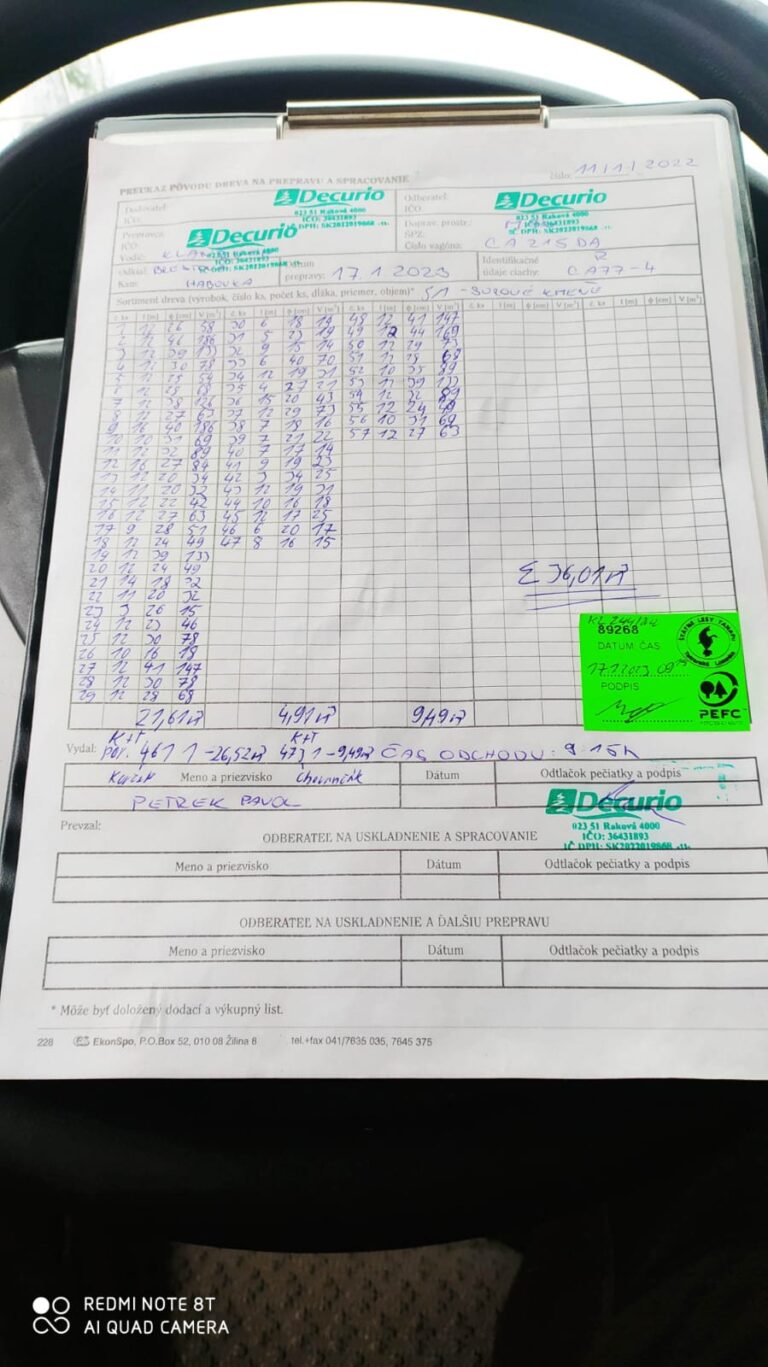 PREUKAZ PÔVODU DREVA NA PREPRAVU A SPRACOVANIE
číslo: 11/1/2022
Dodávateľ:
IČO:
Decurio
023 51 Raková 4000
IČO: 36431893
IČ DPH: SK2022019868
Odberateľ:
IČO:
Decurio
023 51 Raková 4000
IČO: 36431893
IČ DPH: SK2022019868
Prepravca:
IČO
Decurio
023 51 Raková 4000
IČO: 36431893
DPH: SK2022019868
Vodič:
Doprav. prostr.:
ŠPZ:
Číslo vagóna: CA 215 DA
Odkiaľ:
Kam: HABOVKA
Dátum
prepravy: 17.1 2023
Identifikačné
údaje ciachy: CA77-4
Sortiment dreva (výrobok, číslo ks, počet ks, dĺžka, priemer, objem)* S1 - SUROVÉ KMENE
č. ks l [m] φ [cm] V [m³] č. ks l [m] φ [cm] V [m³] č. ks l [m] φ [cm] V [m³] č. ks l [m] φ [cm] V [m³] č. ks l [m] φ [cm] V [m³]
1 12 26 58 30 6 18 48 12 41 147
2 12 46 186 31 5 23 19 49 12 44 169
3 12 39 133 32 9 15 14 50 11 29
4 12 30 78 33 6 40 70 51 12 28 68
5 12 34 12 19 31 52 10 35 89
6 12 28 68 35 4 27 21 53 12 39 133
7 12 38 126 36 15 20 43 54 12 32 89
8 12 27 63 37 12 29 73 55 12 24 49
9 16 40 186 38 7 18 16 56 10 31 69
10 10 31 69 39 7 21 22 57 12 27 63
11 12 32 89 40 7 17 14
12 16 27 84 41 9 19 23
13 12 20 34 42 3 34 25
14 11 20 32 43 12 19 31
15 12 22 42 44 10 16 18
16 12 27 63 45 12 17 25
17 9 28 51 46 6 20 17
18 12 24 49 47 8 16 15
19 12 39 133
20 12 24 49
21 14 18 32
22 11 20 32
23 3 26 15
24 12 23 46
25 12 30 78
26 10 16 18
27 12 41 147
28 12 30 78
29 12 28 68
Σ 36,01 m³
89268
DATUM ČAS
17.1.2023 09 15
PODPIS
ŠTÁTNE LESY TANAPU
PEFC
21,61 m³ 4,91 m³ 9,49 m³
K+T K+T
Vydal: POV. 461 1 - 26,52 m³ 473 1 - 9,49 m³ ČAS ODCHODU: 9 15h
Meno a priezvisko Dátum Odtlačok pečiatky a podpis
PETREK PAVOL
Decurio
023 51 Raková 4000
IČO: 36431893
IČ DPH: SK2022019868
Prevzal:
ODBERATEĽ NA USKLADNENIE A SPRACOVANIE
Meno a priezvisko Dátum Odtlačok pečiatky a podpis
ODBERATEĽ NA USKLADNENIE A ĎALŠIU PREPRAVU
Meno a priezvisko Dátum Odtlačok pečiatky a podpis
* Môže byť doložený dodací a výkupný list.
228 EkonSpo, P.O.Box 52, 010 08 Žilina 8 tel.+fax 041/7635 035, 7645 375
REDMI NOTE 8T
AI QUAD CAMERA